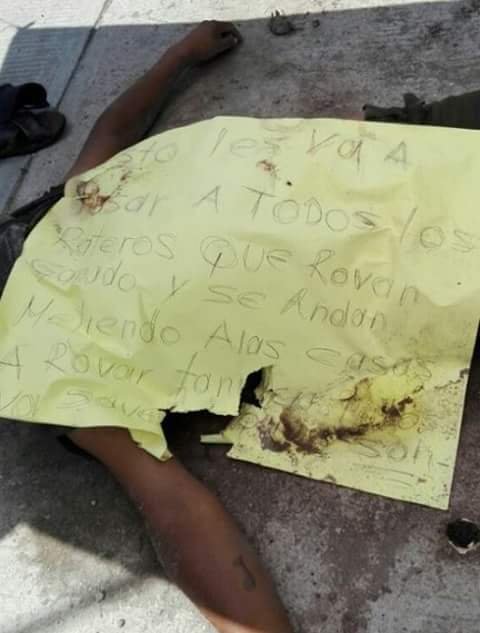 sto les va A
sar A TODOS los
Rateros QUE Rovan
y SE Andan
Metiendo Alas casas
A Rovar tam
ya save
son